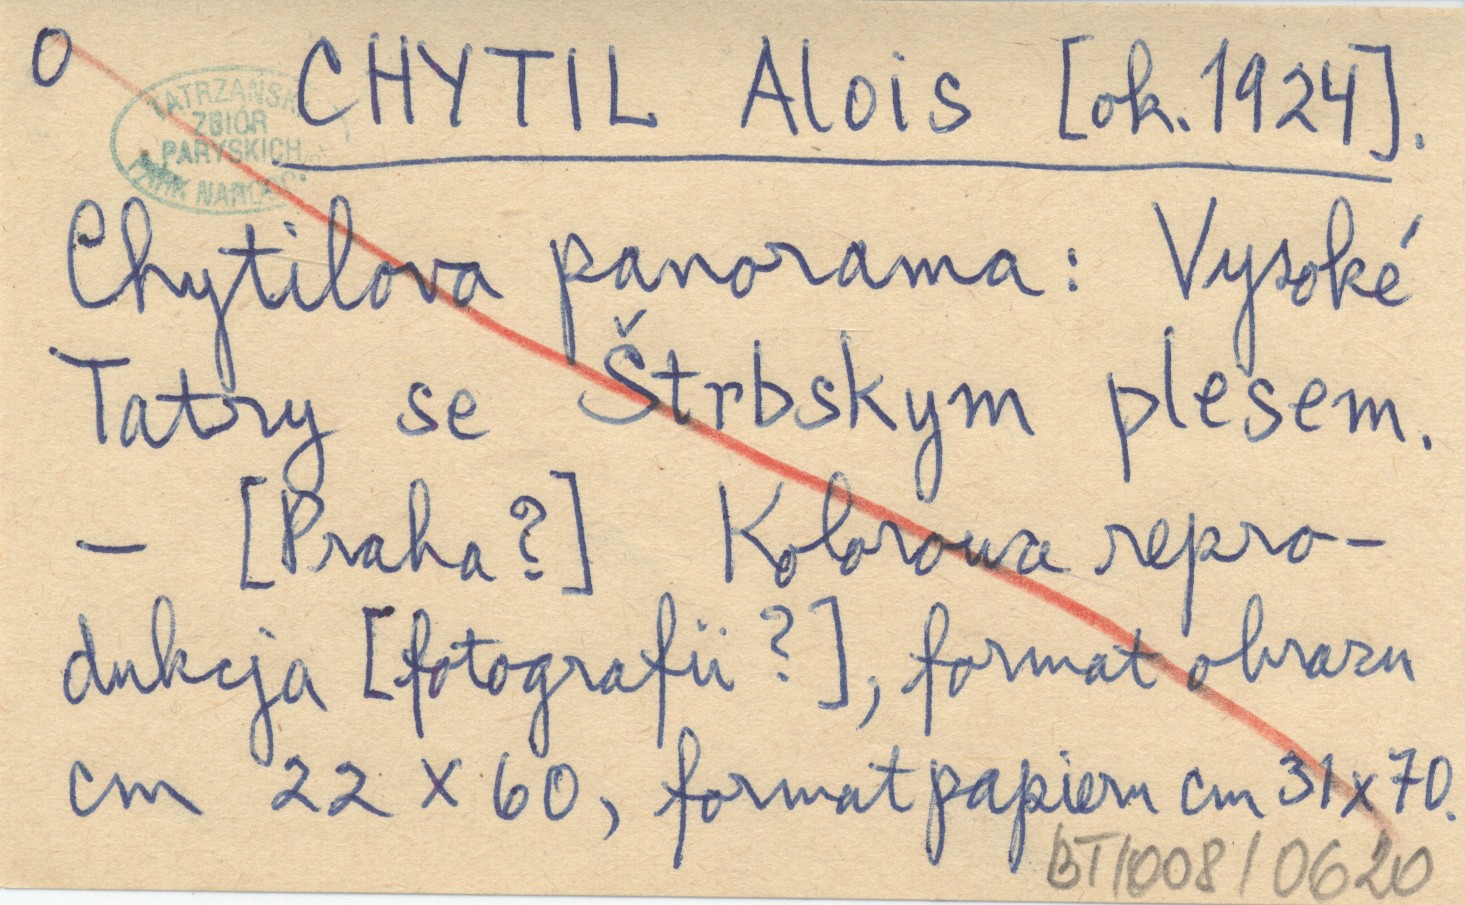 O
CHYTIL Alois [ok. 1924].
TATRZAŃSKI
ZBIOR
PARYSKICH
PARK NARODO
Chytilova panorama: Vysoké
Tatry se Štrbskym plesem.
— [Praha?] Kolorowa repro-
dukcja [fotografii?], format obrazu
cm 22 x 60, format papieru cm 31 x 70.
BT/008/0620